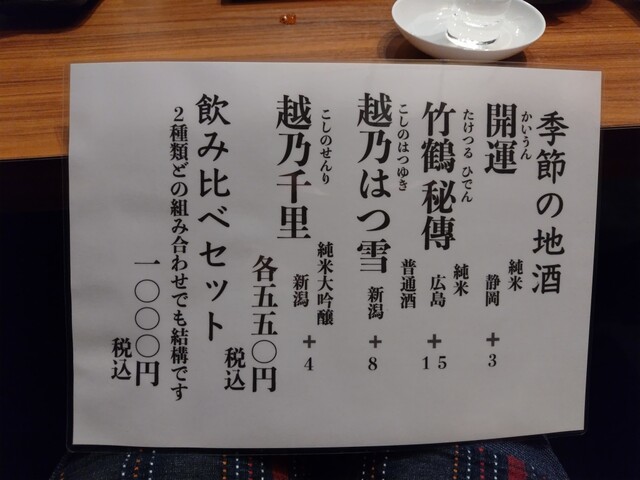 季節の地酒
かいうん
開運
純米
静岡 +3
たけつる ひでん
竹鶴 秘傳
純米
広島 +15
こしのはつゆき
越乃はつ雪
普通酒
新潟 +8
こしのせんり
越乃千里
純米大吟醸
新潟 +4
各五五〇円
税込
飲み比べセット
2種類どの組み合わせでも結構です
一〇〇〇円
税込